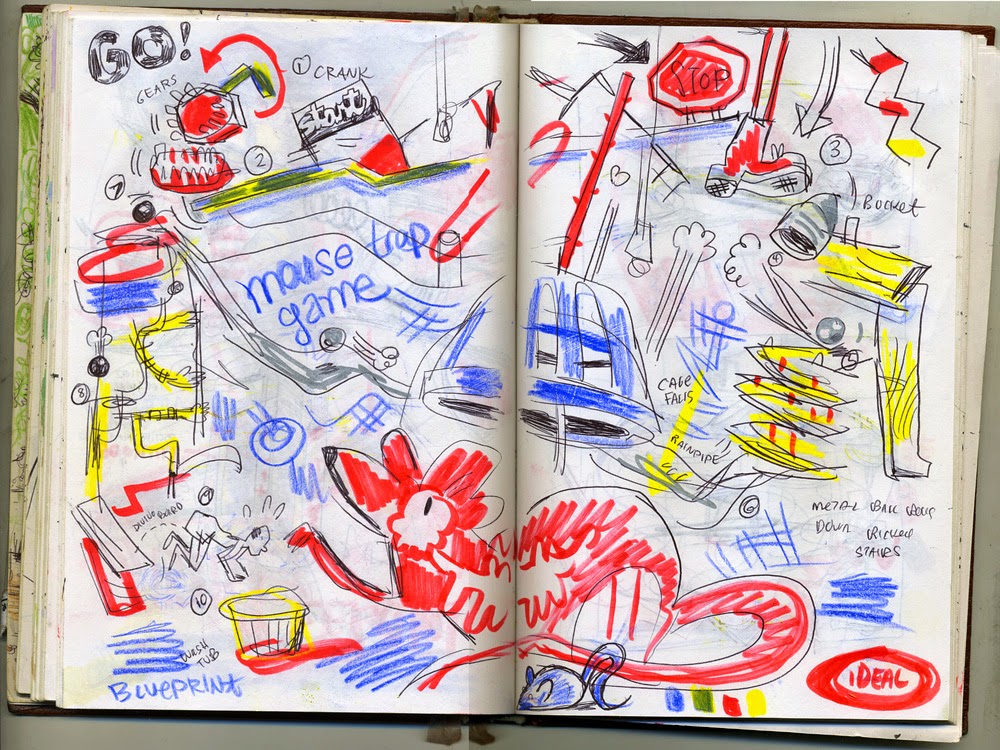 GO!
GEARS
① CRANK
start
②
7
mouse trap
game
8
DIVING BOARD
9
10
WASH
TUB
BLUEPRINT
STOP
③
BUCKET
4
5
CAGE
FALLS
RAINPIPE
6
METAL BALL
DOWN
STAIRS
IDEAL